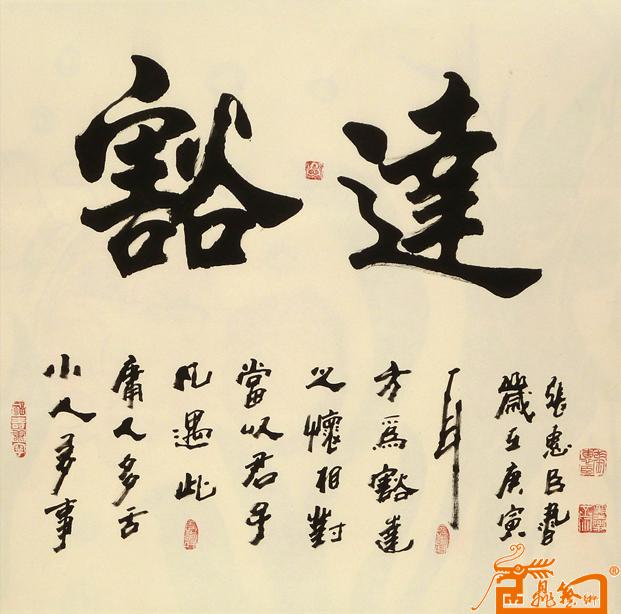 豁達
小人多事
庸人多舌
凡遇此
當以君子
之懷相對
方為豁達
耳
歲在庚寅
張惠臣書